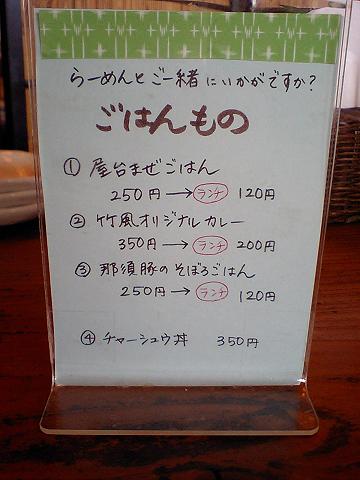 らーめんとご一緒にいかがですか?
ごはんもの
① 屋台まぜごはん
250円→ランチ 120円
② 竹風オリジナルカレー
350円→ランチ 200円
③ 那須豚のそぼろごはん
250円→ランチ 120円
④ チャーシュウ丼 350円